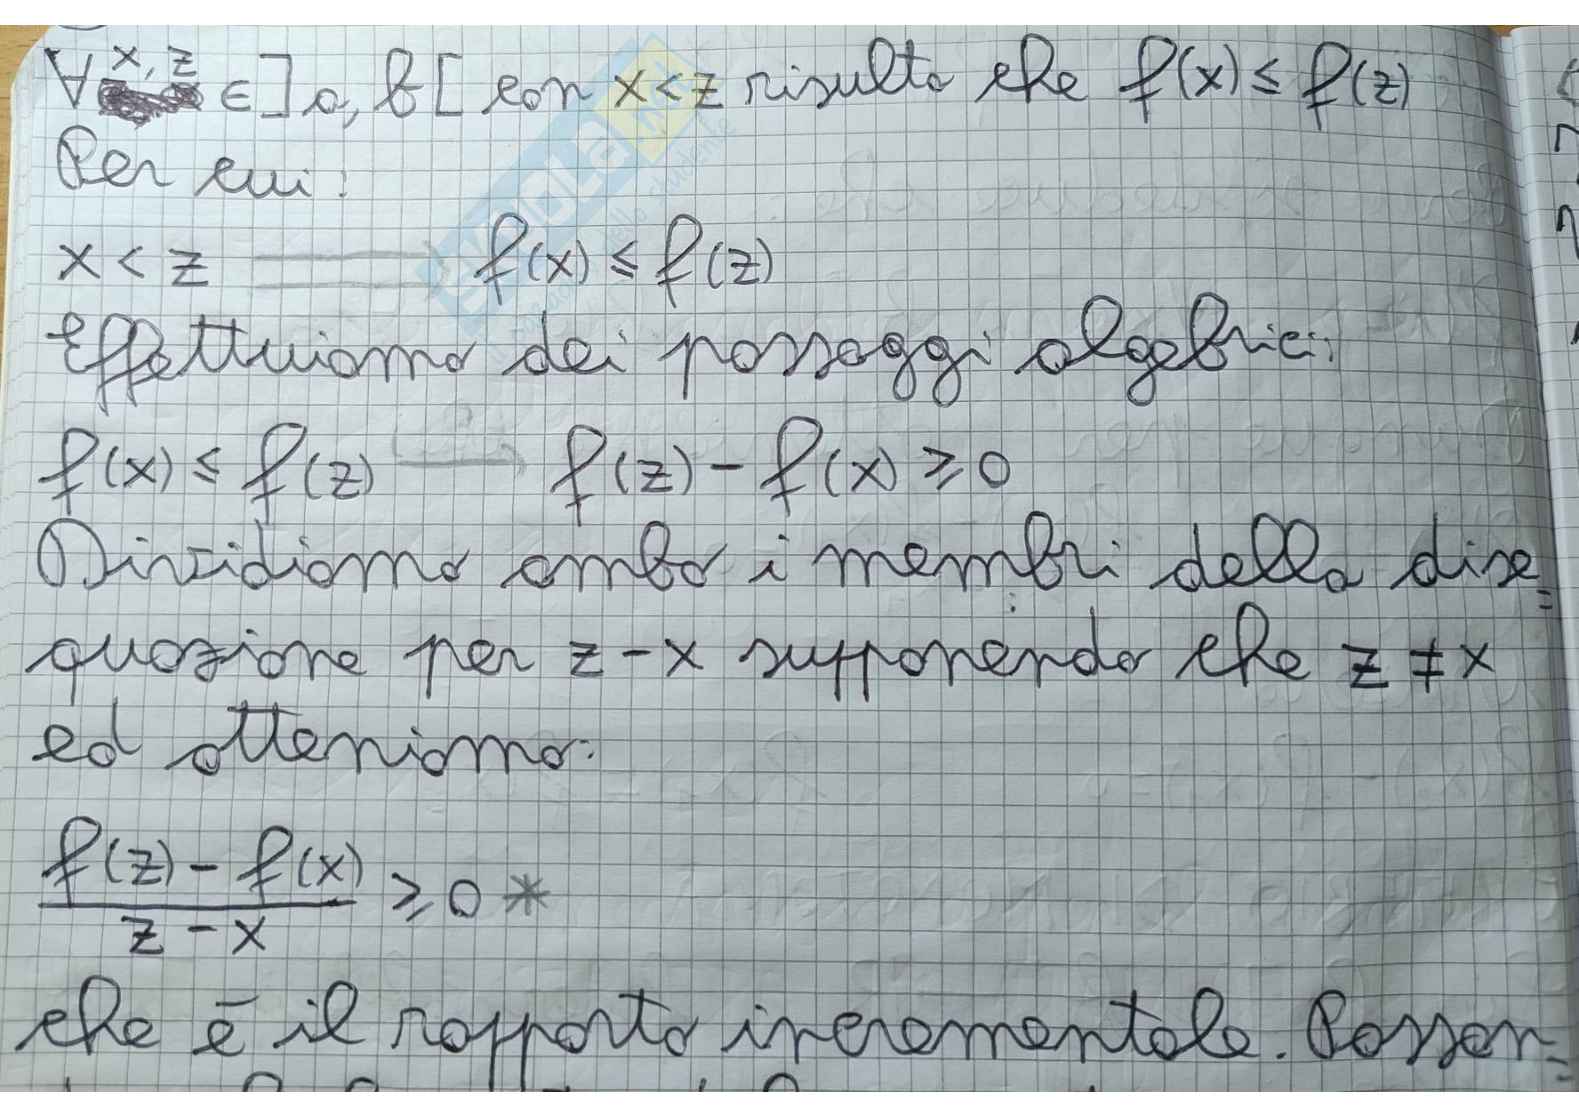 ∀ x, z ∈ ]a, b[ con x < z risulta che f(x) ≤ f(z)
Per cui:
x < z ⟹ f(x) ≤ f(z)
Effettuiamo dei passaggi algebrici:
f(x) ≤ f(z) → f(z) - f(x) ≥ 0
Dividiamo ambo i membri della dise=
quazione per z - x supponendo che z ≠ x
ed otteniamo:
f(z) - f(x)
≥ 0 *
z - x
che è il rapporto incrementale. Passan=